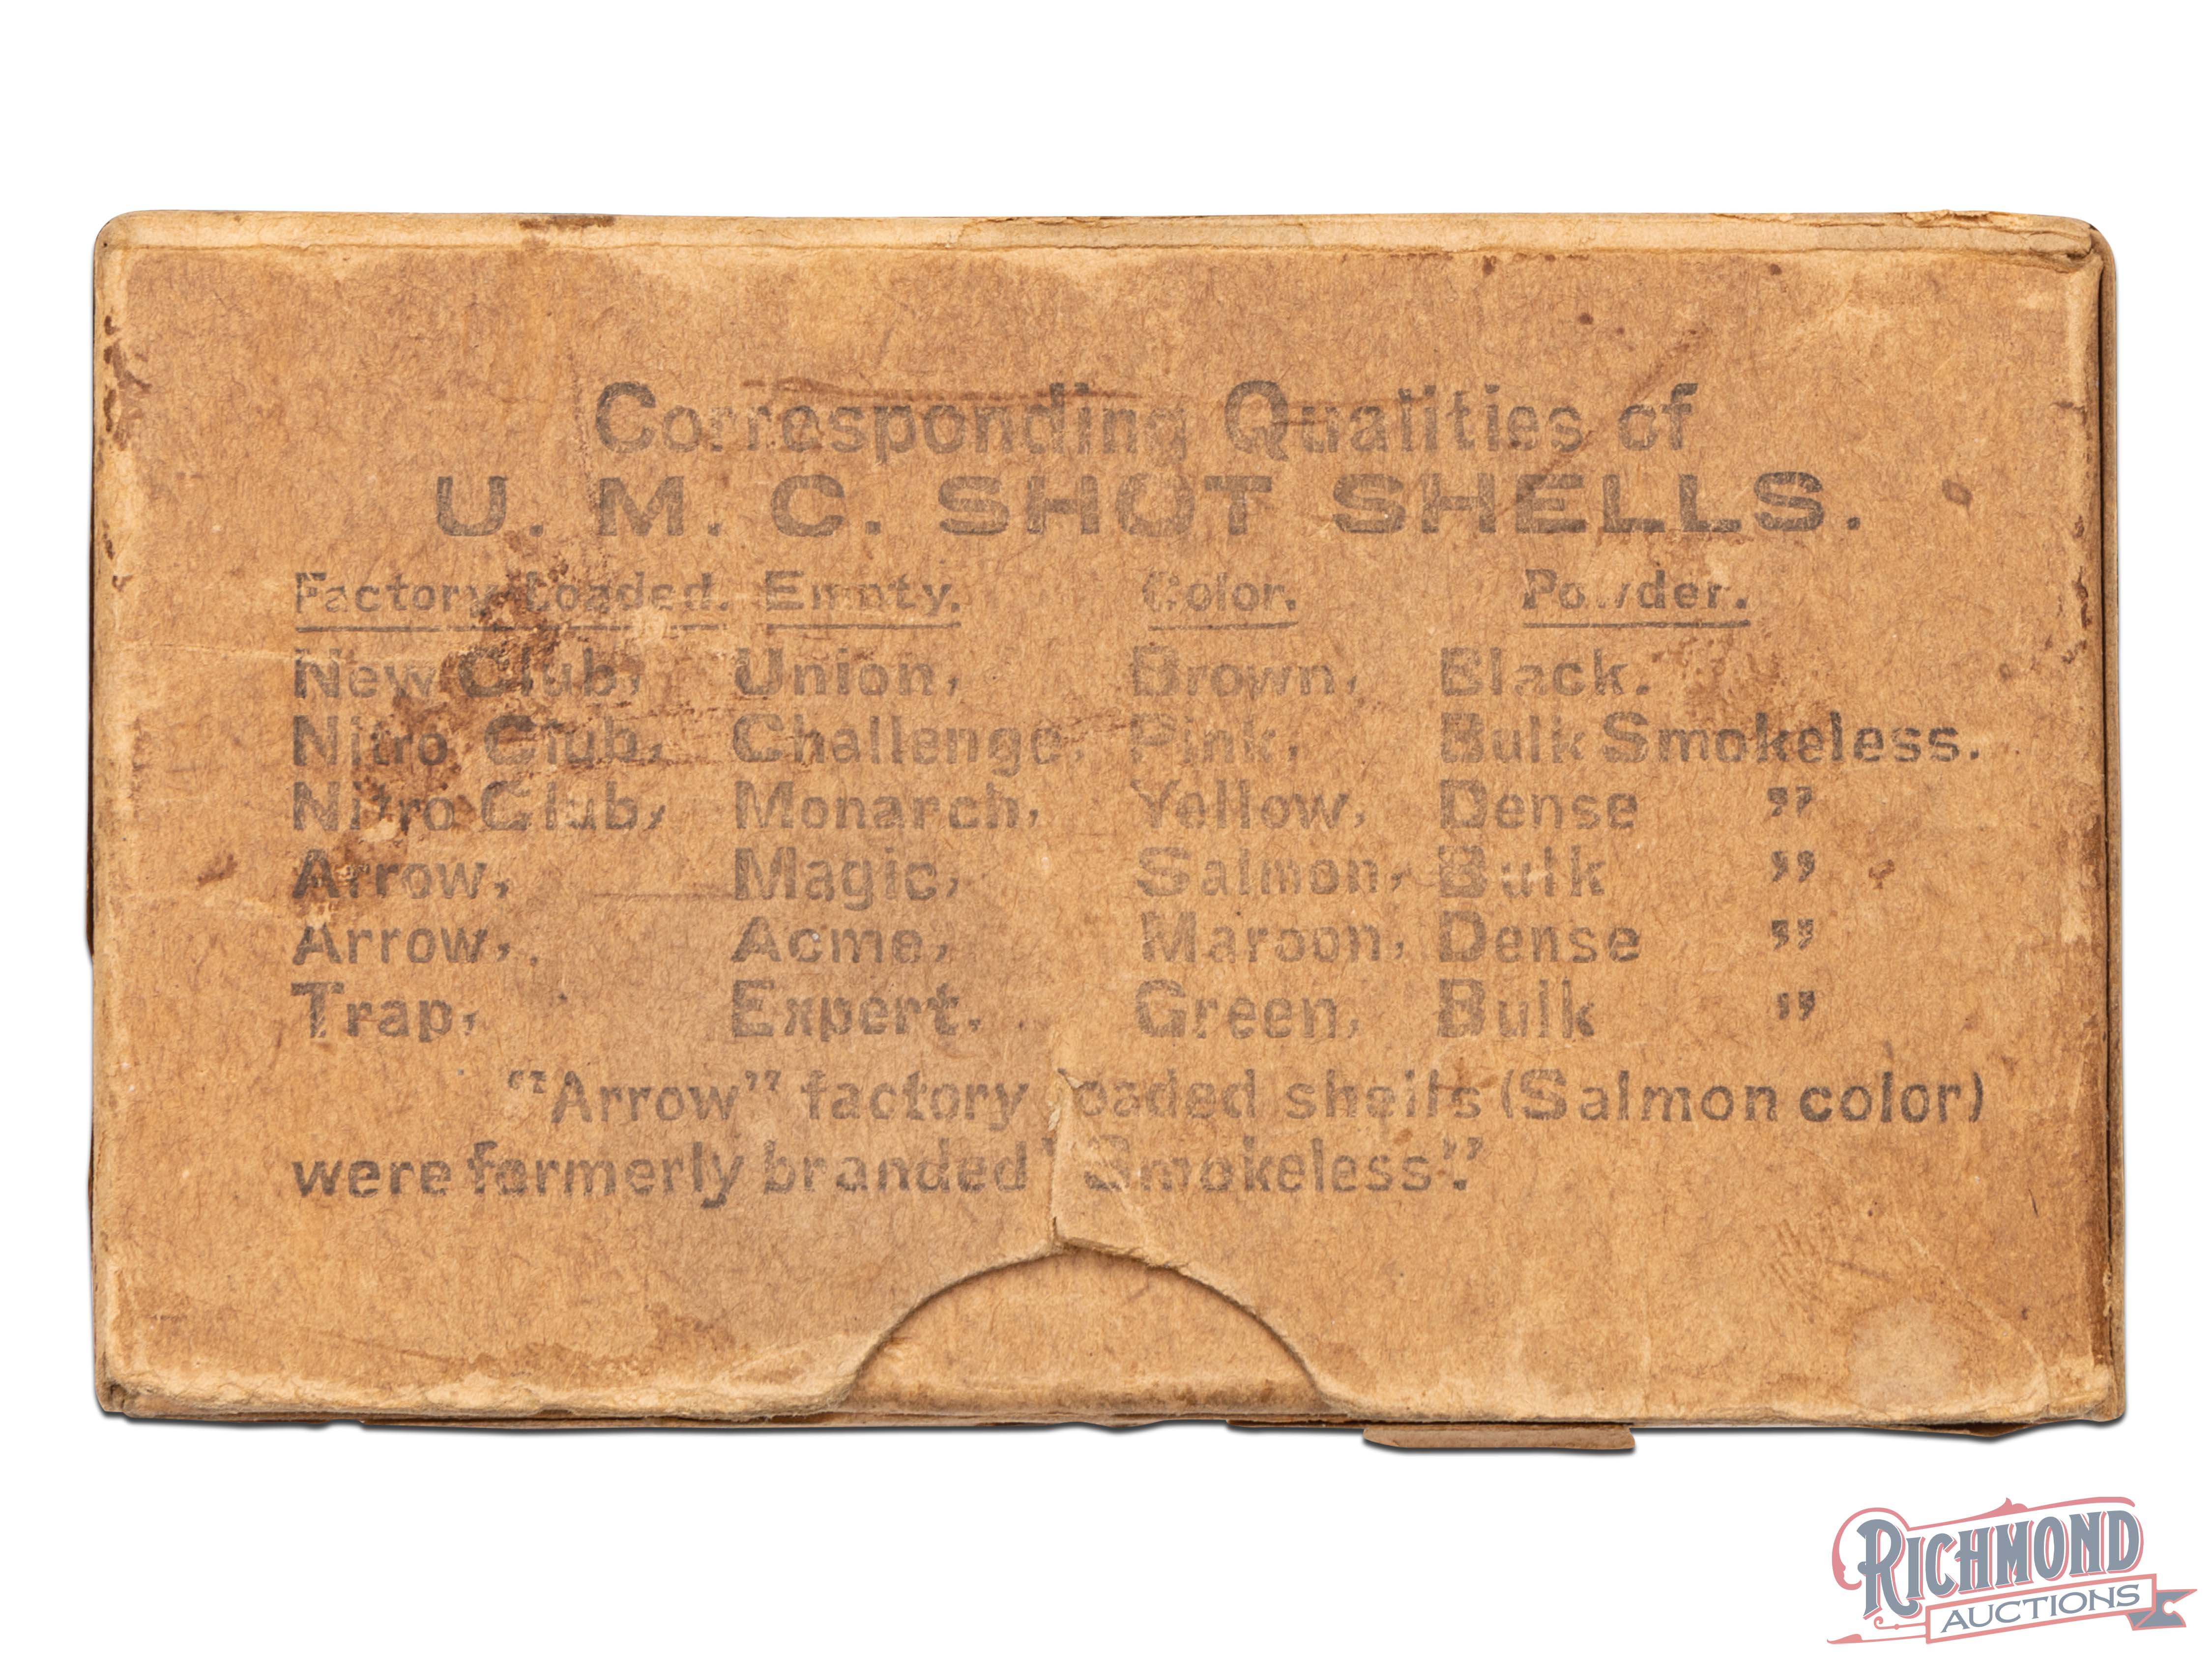 Corresponding Qualities of
U. M. C. SHOT SHELLS.
Factory Loaded. Empty. Color. Powder.
New Club, Union, Brown, Black.
Nitro Club, Challenge, Pink, Bulk Smokeless.
Nitro Club, Monarch, Yellow, Dense ”
Arrow, Magic, Salmon, Bulk ”
Arrow, Acme, Maroon, Dense ”
Trap, Expert. Green, Bulk ”
“Arrow” factory loaded shells (Salmon color)
were formerly branded “Smokeless”.
RICHMOND
AUCTIONS